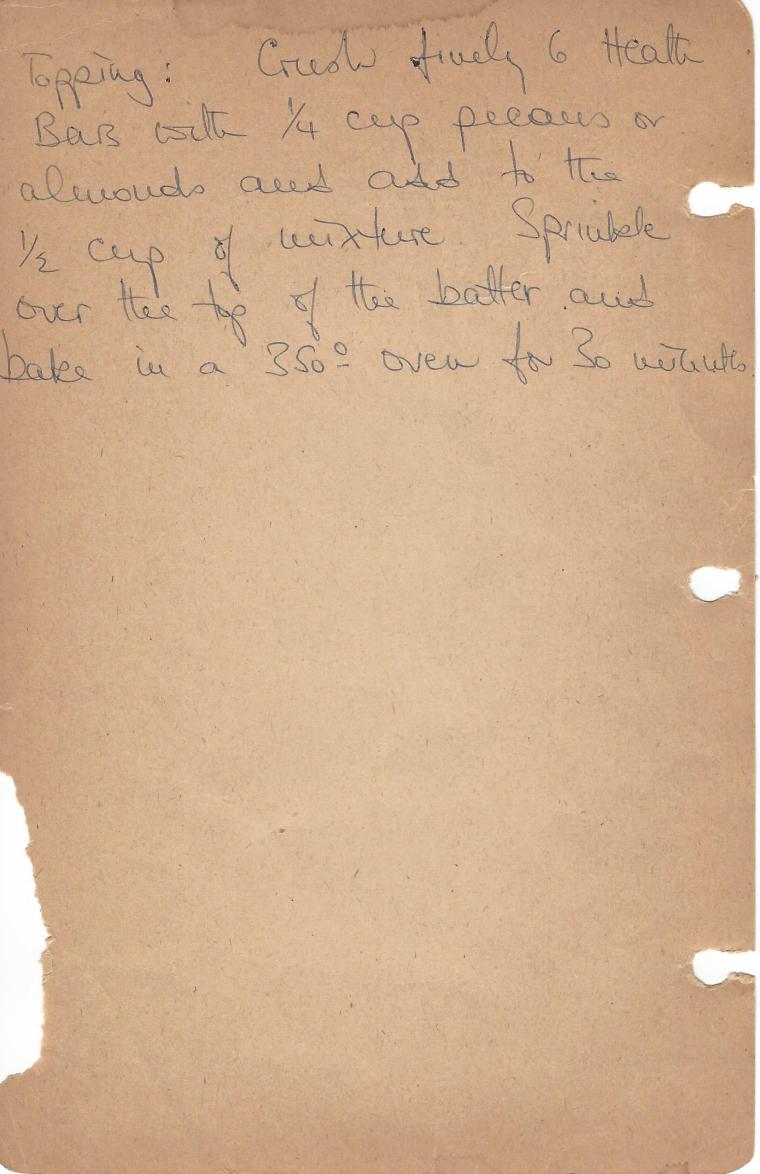 Topping: Crush finely 6 Heath
Bars with 1/4 cup pecans or
almonds and add to the
1/2 cup of mixture. Sprinkle
over the top of the batter and
bake in a 350° oven for 30 minutes.